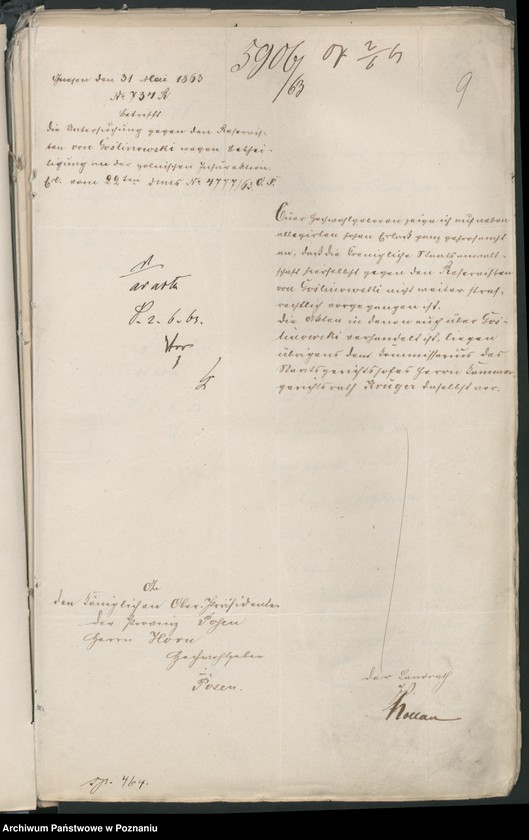 5906/63 OP 2/6 63
9
Gnesen den 31 Mai 1863
No 731 R
betrifft
die Untersuchung gegen den Reservis-
ten von Goślinowski wegen Bethei-
ligung an der polnischen Insurektion.
Erl. vom 22ten dieses No 4777/63 O.P.
Euer Hochwohlgeboren zeige ich auf neben
allegirten hohen Erlaß ganz gehorsamst
an, daß die Koenigliche Staatsanwalt-
schaft hierselbst gegen den Reservisten
von Goślinowski nicht weiter straf-
rechtlich vorgegangen ist.
Die Akten in denen auch über Goś-
linowski verhandelt ist, liegen
übrigens dem Kommissarius des
Staatsgerichtshofes Herrn Kammer
gerichtsrath Krüger daselbst vor.
ad acta
P. 2. 6. 63.
An
den Königlichen Ober-Präsidenten
der Provinz Posen
Herrn Horn
Hochwohlgeboren
Posen.
Der Landrath
Nollau
464.
Archiwum Państwowe w Poznaniu